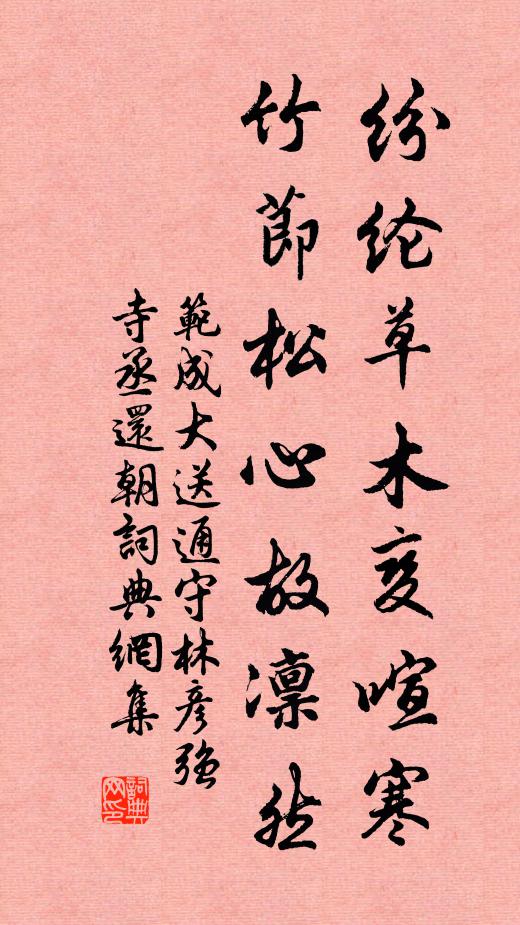 纷纶草木变暄寒
竹節松心故凛然
範成大送通守林彦强
寺丞還朝詞典網集
詞典网印